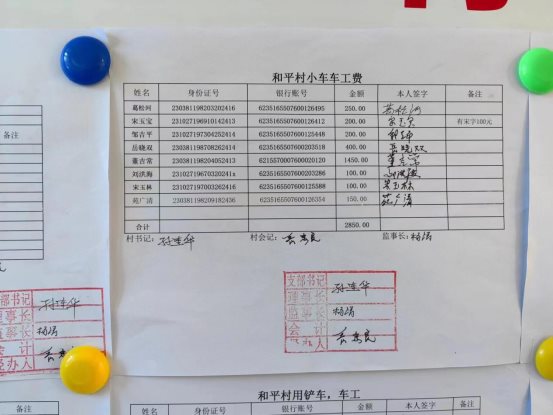 和平村小车车工费
姓名 身份证号 银行账号 金额 本人签字 备注
葛松河 230381198203202416 6235165507600126495 250.00 葛松河
宋玉宝 231027196910142413 6235165507600126412 200.00 宋玉宝 有宋字100元
邹吉平 231027197304252414 6235165507600125448 200.00
岳晓双 230381198708262414 6235165507600203518 400.00 岳晓双
董吉常 230381198204052413 6215570007600020120 1450.00
刘洪海 23102719670320241x 6235165507600203286 100.00
宋玉林 231027197003262416 6235165507600125588 100.00 宋玉林
苑广清 230381198209182436 6235165507600126354 150.00 苑广清
合计 2850.00
村书记: 孙连华 村会记: 监事长: 杨涛
支部书记 孙连华
理事长
监事长 杨涛
会计
经办人
备注
支部书记
理事长 孙连华
监事长 杨涛
会计
经办人
和平村用铲车,车工
姓名 身份证号 银行账号 金额 本人签字 备注